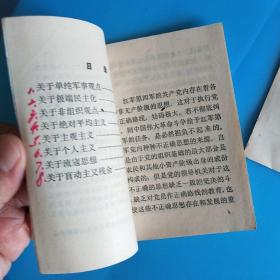 目录
关于单纯军事观点
关于极端民主化
关于非组织观点
关于绝对平均主义
关于主观主义
关于个人主义
关于流寇思想
关于盲动主义残余
红军第四军的共产党内存在着各
非无产阶级的思想，这对于执行党
正确路线，妨碍极大。
则中国伟大革命斗争给予红军第
军的任务，是必然担负不起来的。
种种不正确思想的来源，
自由于党的组织基础的最大部分是
农民和其他小资产阶级出身的成份
构成的；但是党的领导机关对于这
不正确的思想缺乏一致的坚决的斗
缺乏对党员作正确路线的教育，也
使这些不正确思想存在和发展的重
1